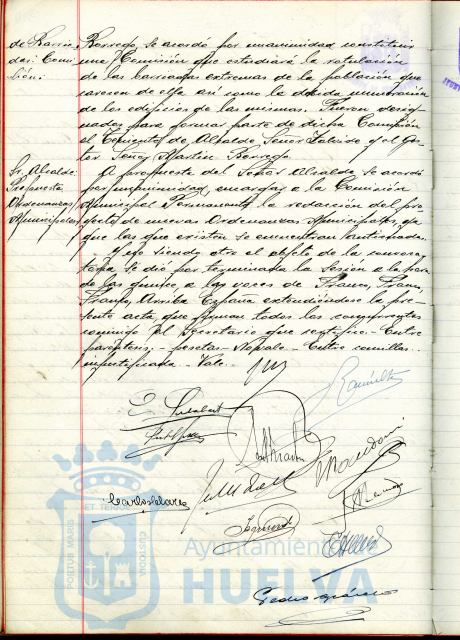 de Barrio,
das: Comi
sión.
Borrego, se acordó por unanimidad constituir
una Comisión que estudiará la rotulación
de las barriadas extremas de la población que
carecen de ella así como la debida numeración
de los edificios de las mismas. Fueron desig
nados para formar parte de dicha Comisión
el Teniente de Alcalde Señor y el Ges
tor Señor Martín Borrego.
Sr. Alcalde:
Propuesta
Ordenanzas
Municipales
A propuesta del Señor Alcalde se acordó
por unanimidad, encargar a la Comisión
Municipal Permanente la redacción del pro
yecto de nuevas Ordenanzas Municipales, ya
que las que existen se encuentran anticuadas.
Y no siendo otro el objeto de la convoca
toria, se dió por terminada la sesión a la hora
de las quince, a las voces de Franco, Franco,
Franco, Arriba España extendiéndose la pre
sente acta, que firman todos los concurrentes
conmigo el Secretario que certifico.- Entre
paréntesis.- pesetas.- No vale.- Entre comillas.-
injustificada.- Vale.-
Carlos
Pedro
PORTUS MARIS ET TERRAE CUSTODIA
Ayuntamiento de
HUELVA